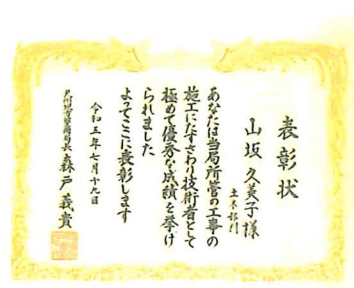 表彰状
山坂久美子様
土木部門
あなたは当局所管の工事の
施工にたずさわり技術者として
極めて優秀な成績を挙げ
られました
よってここに表彰します
令和五年七月十九日
局長 森戸義貴